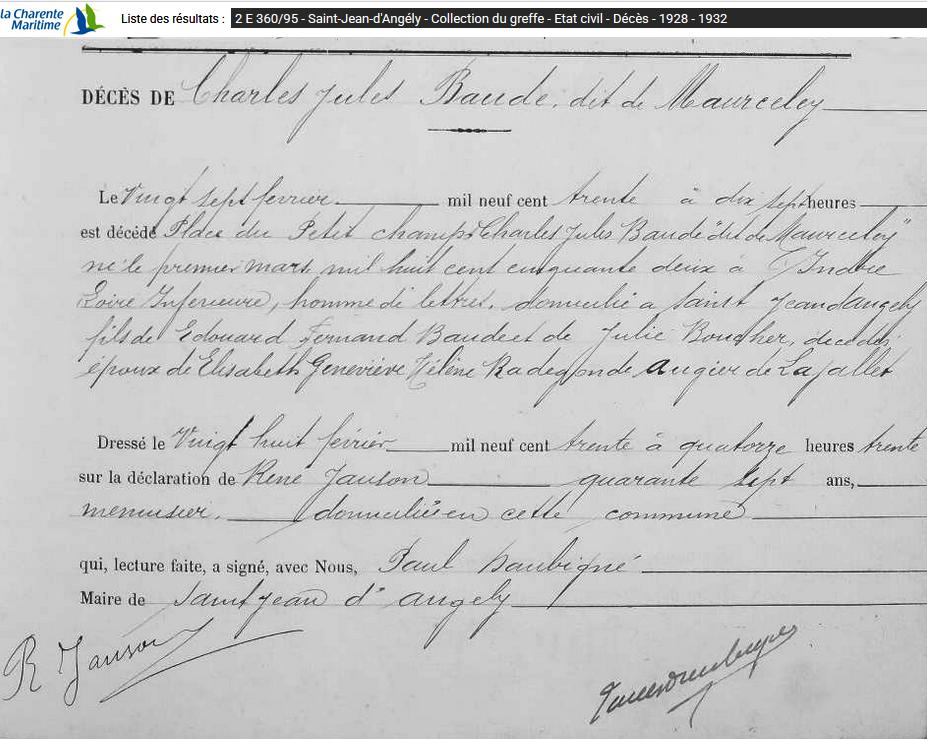 la Charente
Maritime
Liste des résultats : 2 E 360/95 - Saint-Jean-d'Angély - Collection du greffe - Etat civil - Décès - 1928 - 1932
DÉCÈS DE Charles Jules Baude, dit de Maurceley
Le Vingt sept février mil neuf cent trente à dix sept heures
est décédé Place du Petit champs Charles Jules Baude "dit de Maurceley"
né le premier mars mil huit cent cinquante deux à Indre
Loire Inférieure, homme de lettres, domicilié à Saint Jean d'angely
fils de Edouard Fernand Baude et de Julie Boucher, décédés
époux de Elisabeth Geneviève Hélène Radegonde Augier de Lajallet
Dressé le Vingt huit février mil neuf cent trente à quatorze heures trente
sur la déclaration de René Jauson quarante sept ans,
menuisier, domicilié en cette commune
qui, lecture faite, a signé, avec Nous, Paul
Maire de Saint Jean d'angely
R Jauson